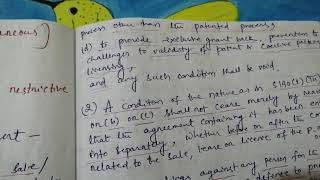 process other than the patented process;
(d) to provide exclusive grant back, prevention to
challenges to validity of patent & coercive package
licensing,
and any such condition shall be void.
restrictive
(2) A condition of the nature as in § 140(1)
or (b) or (c) shall not cease merely by
that the agreement containing it has been
into separately, whether before or after the
related to the sale, lease or licence of the
against any person for the
defence to